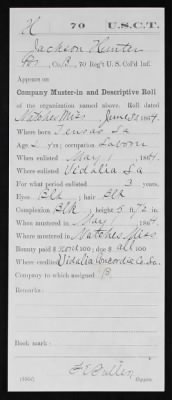 H 70 U.S.C.T.
Jackson Hunter
Co. B, 70 Reg't U. S. Col'd Inf.
Appears on
Company Muster-in and Descriptive Roll
of the organization named above. Roll dated
Natchez Miss June 1864.
Where born Tensas La
Age y'rs; occupation Labor
When enlisted May 1, 1864.
Where enlisted Vidalia La
For what period enlisted 3 years.
Eyes Blk; hair Blk
Complexion Blk; height 5 ft. in.
When mustered in May 1, 1864.
Where mustered in Natchez Miss
Bounty paid $ none 100; due $ all 100
Where credited Vidalia Concordia Co. La.
Company to which assigned B
Remarks:
Book mark:
Copyist.